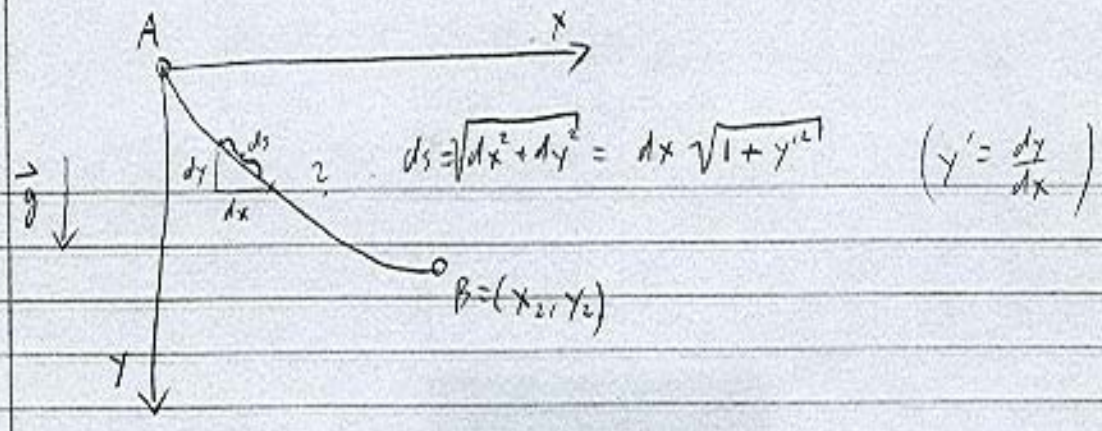 A
x
ds
dy
dx
?
ds = √(dx² + dy²) = dx √(1 + y'²) (y' = dy/dx)
g⃗
B = (x₂, y₂)
y